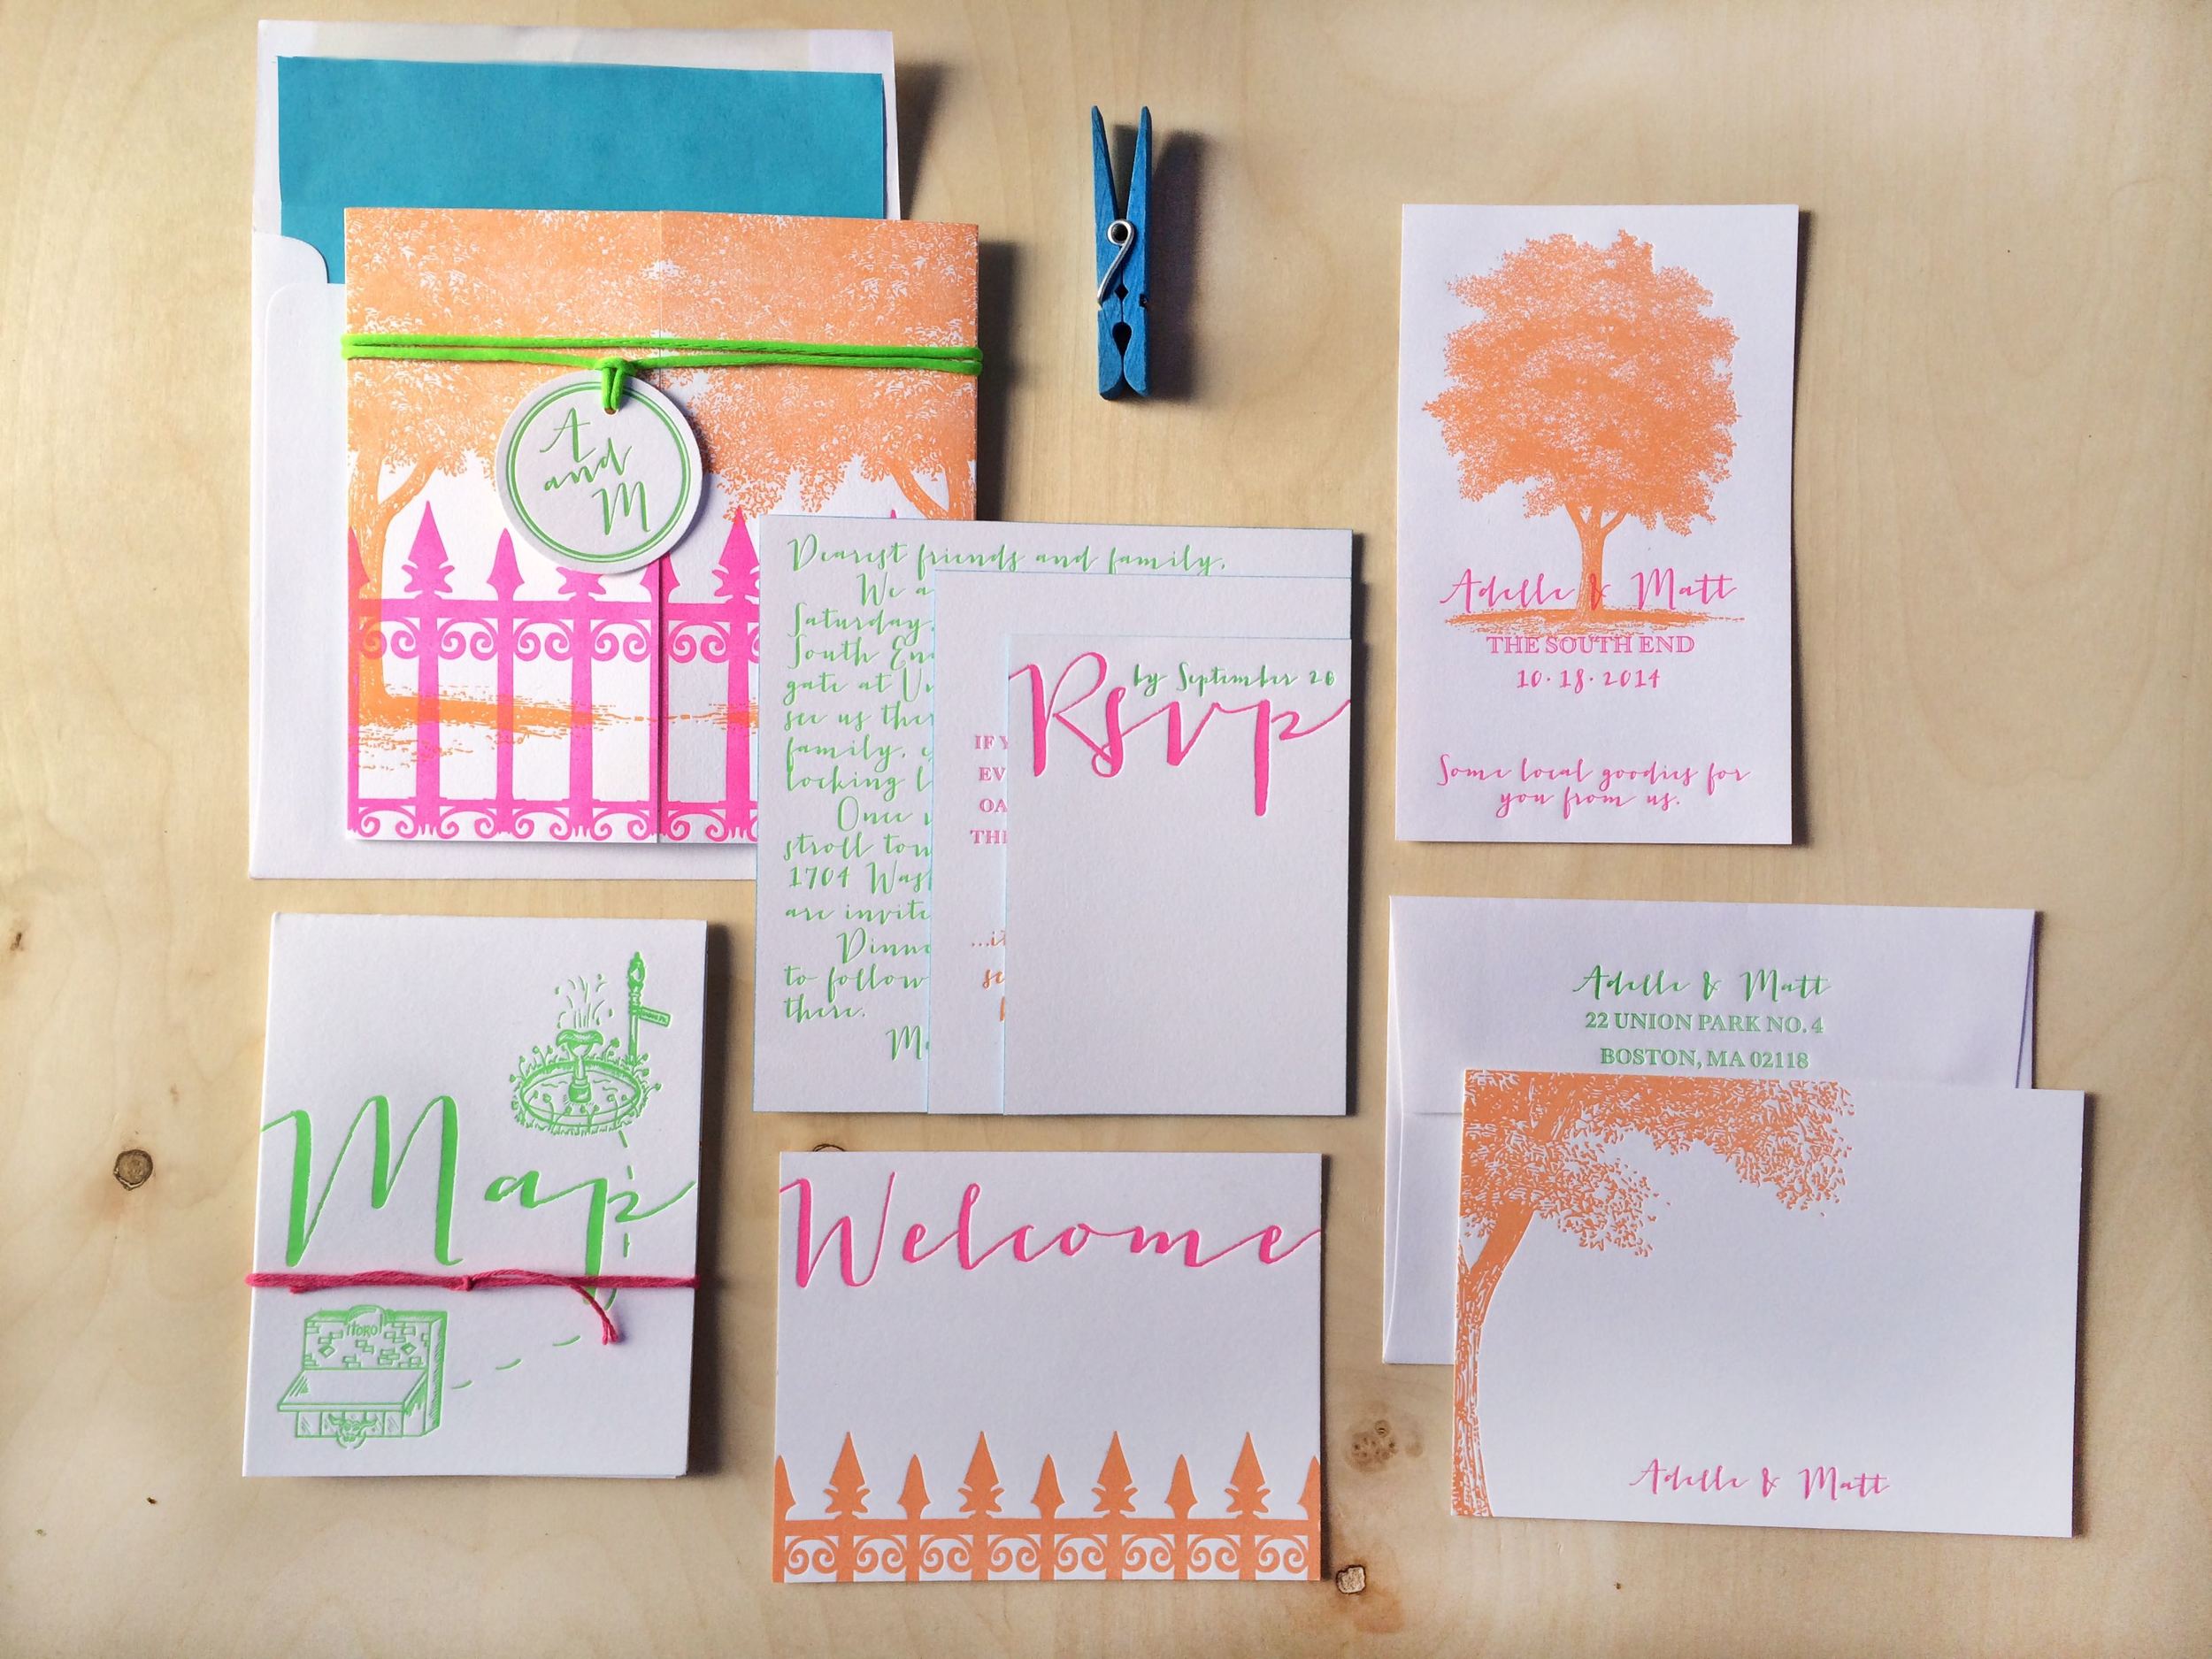 A
and
M
Dearest friends and family,
We a
Saturday,
South En
gate at Un
see us ther
family, c
locking l
Once
stroll tow
1704 Was
are invite
Dinne
to follow
there.
M
IF Y
EV
OA
THE
...it
se
by September 20
Rsvp
Adelle & Matt
THE SOUTH END
10·18·2014
Some local goodies for
you from us.
Map
TORO
Welcome
Adelle & Matt
22 UNION PARK NO. 4
BOSTON, MA 02118
Adelle & Matt